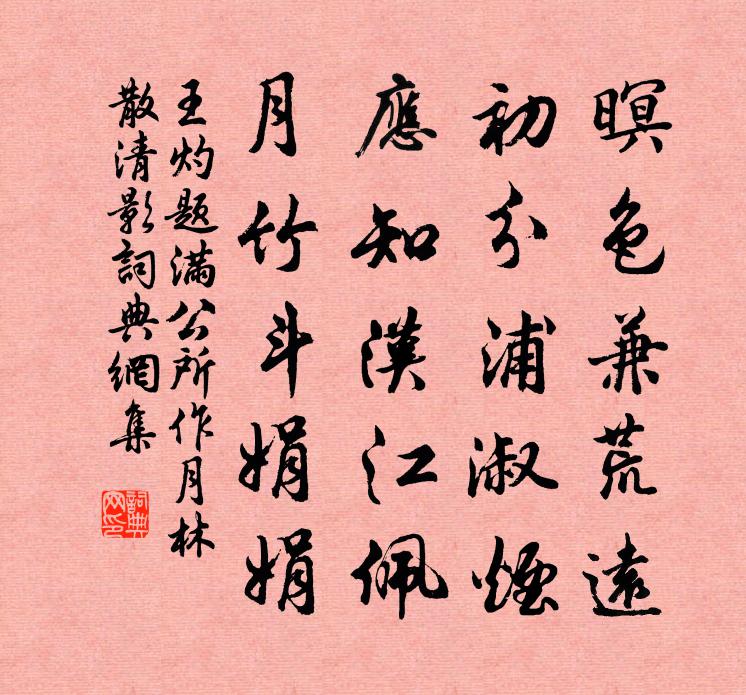 暝色兼荒遠
初分浦淑煙
應知漢江佩
月竹斗娟娟
王灼题滿公所作月林
散清影詞典網集
詞典網印